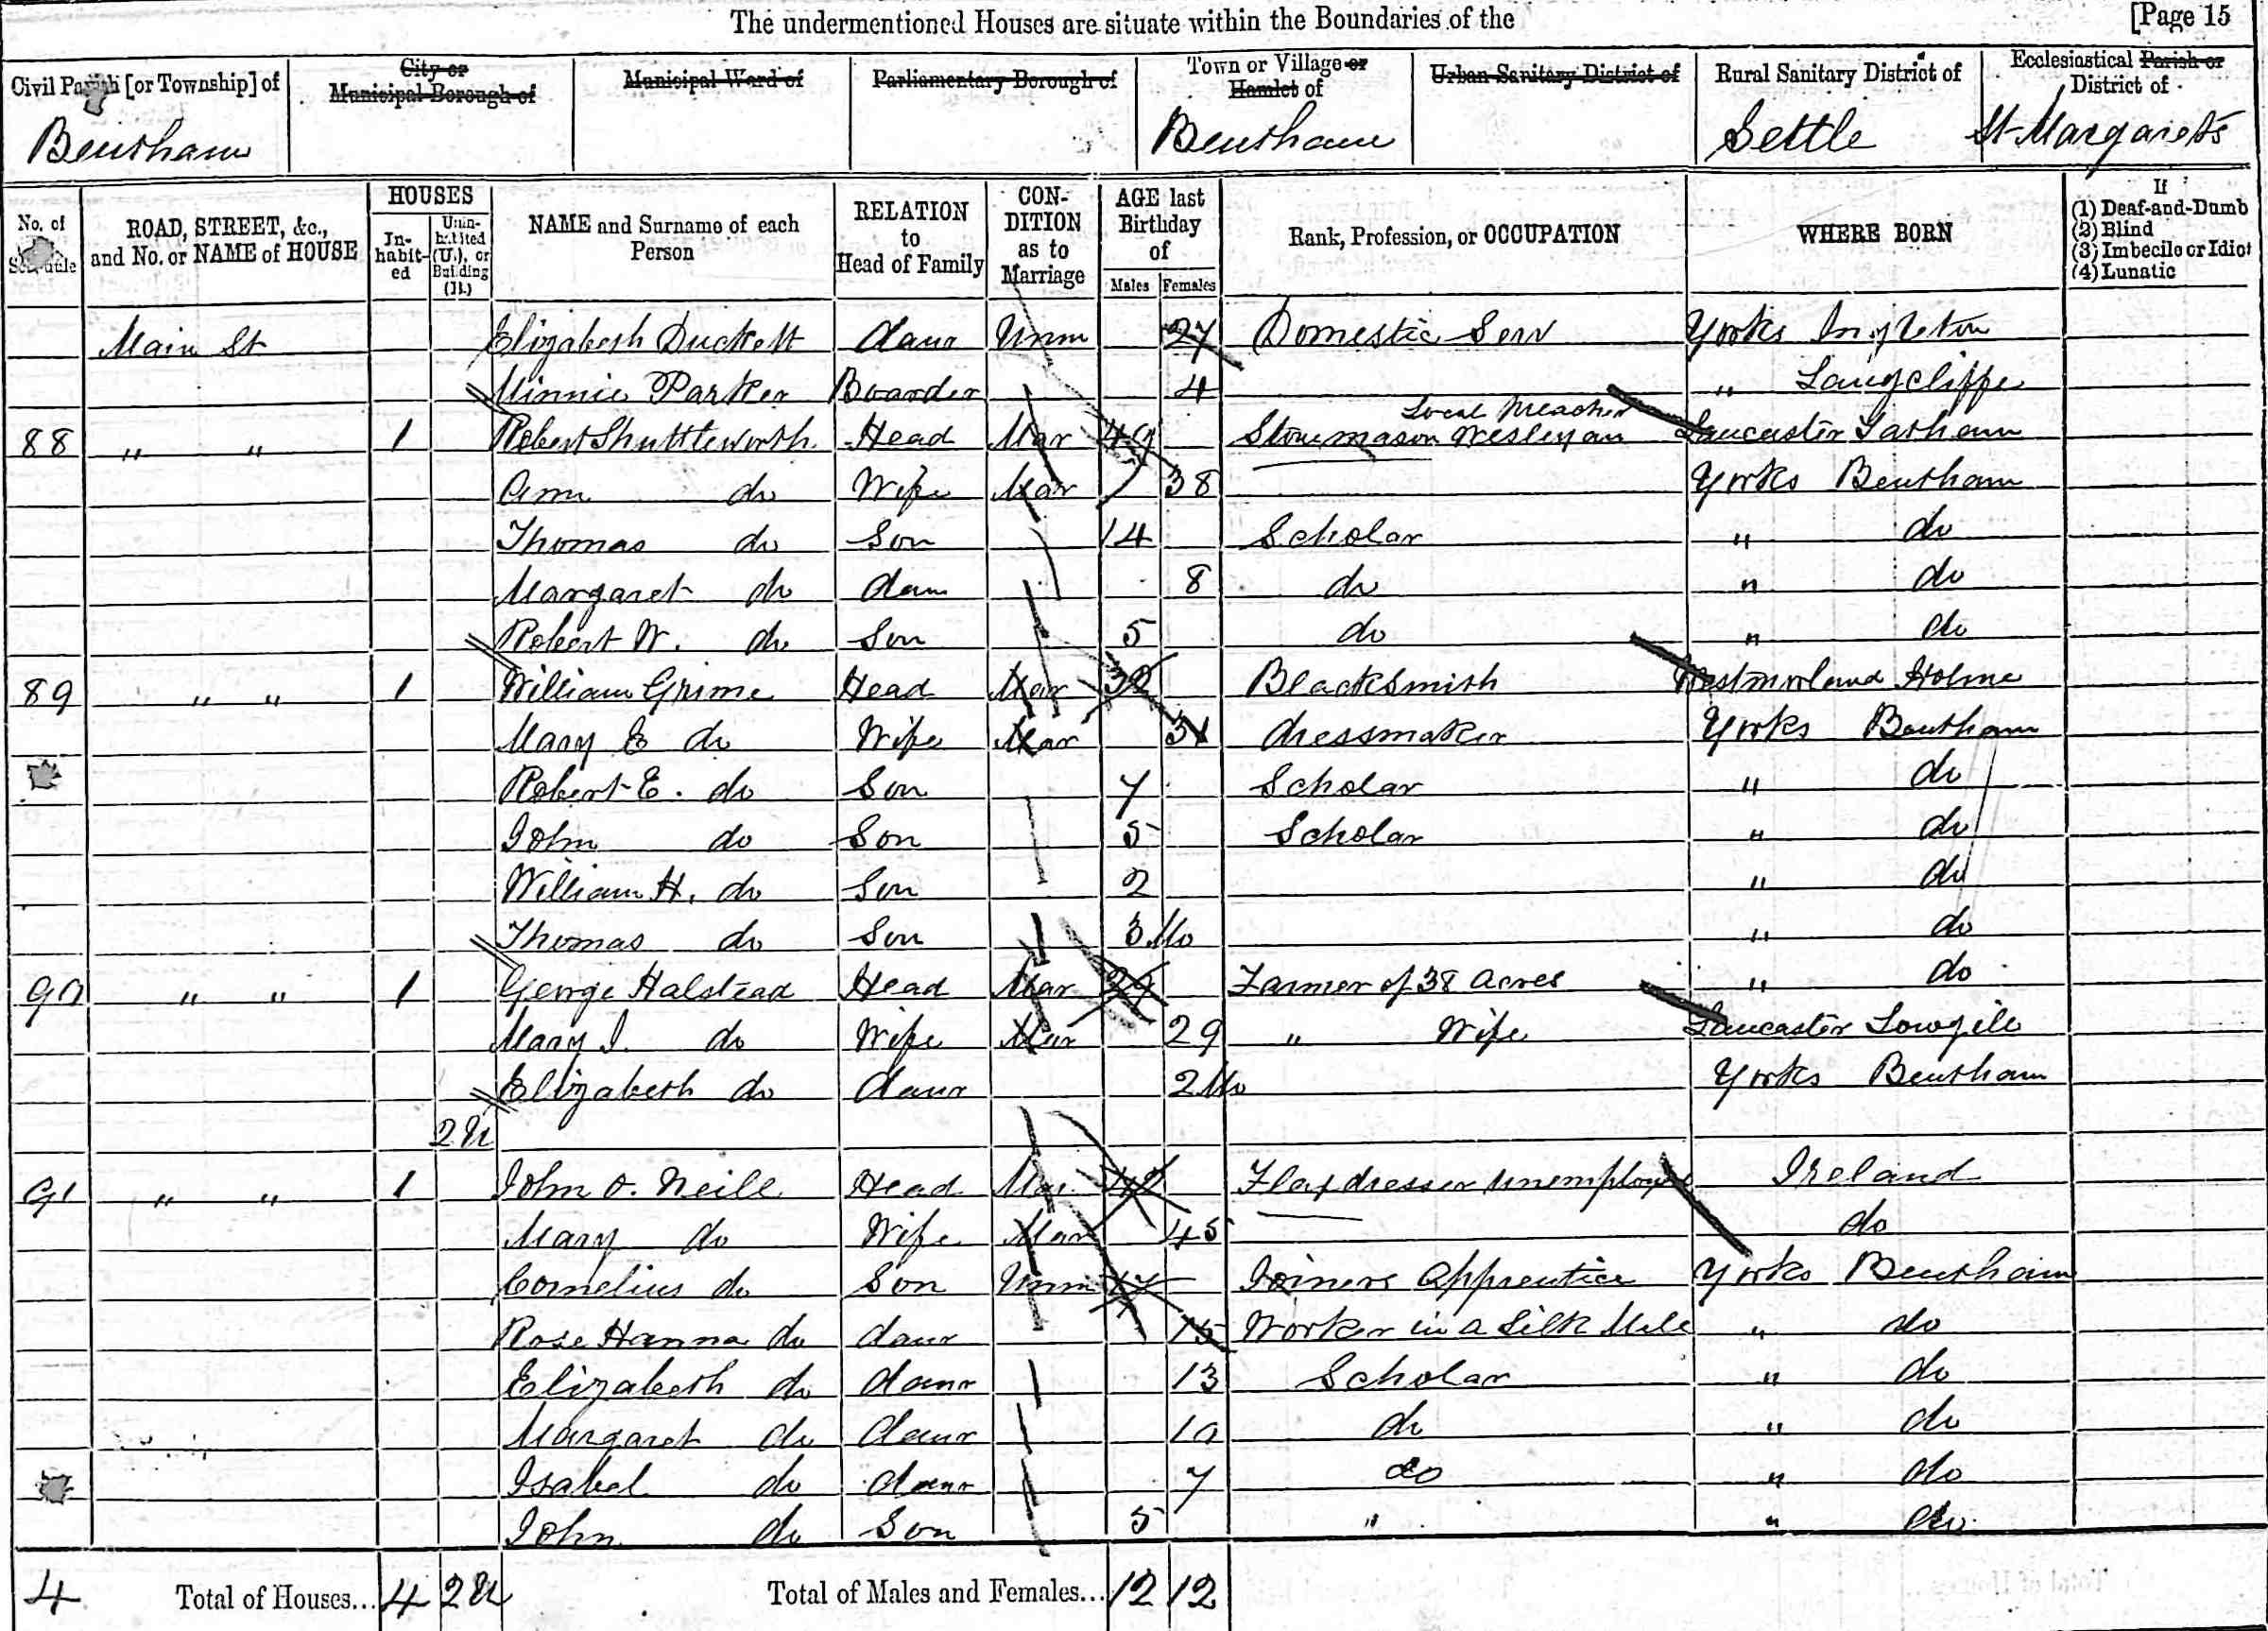 The undermentioned Houses are situate within the Boundaries of the [Page 15
Civil Parish [or Township] of City or Municipal Borough of Municipal Ward of Parliamentary Borough of Town or Village or Hamlet of Urban Sanitary District of Rural Sanitary District of Ecclesiastical Parish or District of
Bentham Bentham Settle St Margaret's
No. of Schedule ROAD, STREET, &c., and No. or NAME of HOUSE HOUSES In-habit-ed Unin-habited (U.), or Building (B.) NAME and Surname of each Person RELATION to Head of Family CON-DITION as to Marriage AGE last Birthday of Males Females Rank, Profession, or OCCUPATION WHERE BORN If (1) Deaf-and-Dumb (2) Blind (3) Imbecile or Idiot (4) Lunatic
Main St Elizabeth Duckett daur Unm 27 Domestic Serv Yorks Ingleton
Minnie Parker Boarder 4 " Langcliffe
Local Preacher
88 " " 1 Robert Shuttleworth Head Mar 49 Stonemason Wesleyan Lancaster Tatham
Ann do Wife Mar 38 Yorks Bentham
Thomas do Son 14 Scholar " do
Margaret do daur 8 do " do
Robert W. do Son 5 do " do
89 " " 1 William Grime Head Mar 32 Blacksmith Westmorland Holme
Mary E do Wife Mar 31 dressmaker Yorks Bentham
Robert E. do Son 7 Scholar " do
John do Son 5 Scholar " do
William H. do Son 2 " do
Thomas do Son 3 Mo " do
90 " " 1 George Halstead Head Mar 29 Farmer of 38 acres " do
Mary I. do Wife Mar 29 " Wife Lancaster Lowgill
Elizabeth do daur 2 Mo Yorks Bentham
2 U
91 " " 1 John O. Neill Head Mar 42 Flaxdresser unemployed Ireland
Mary do Wife Mar 45 do
Cornelius do Son Unm 17 Joiners Apprentice Yorks Bentham
Rose Hanna do daur 15 Worker in a Silk Mill " do
Elizabeth do daur 13 Scholar " do
Margaret do daur 10 do " do
Isabel do daur 7 do " do
John do Son 5 " " do
4 Total of Houses... 4 2 U Total of Males and Females... 12 12